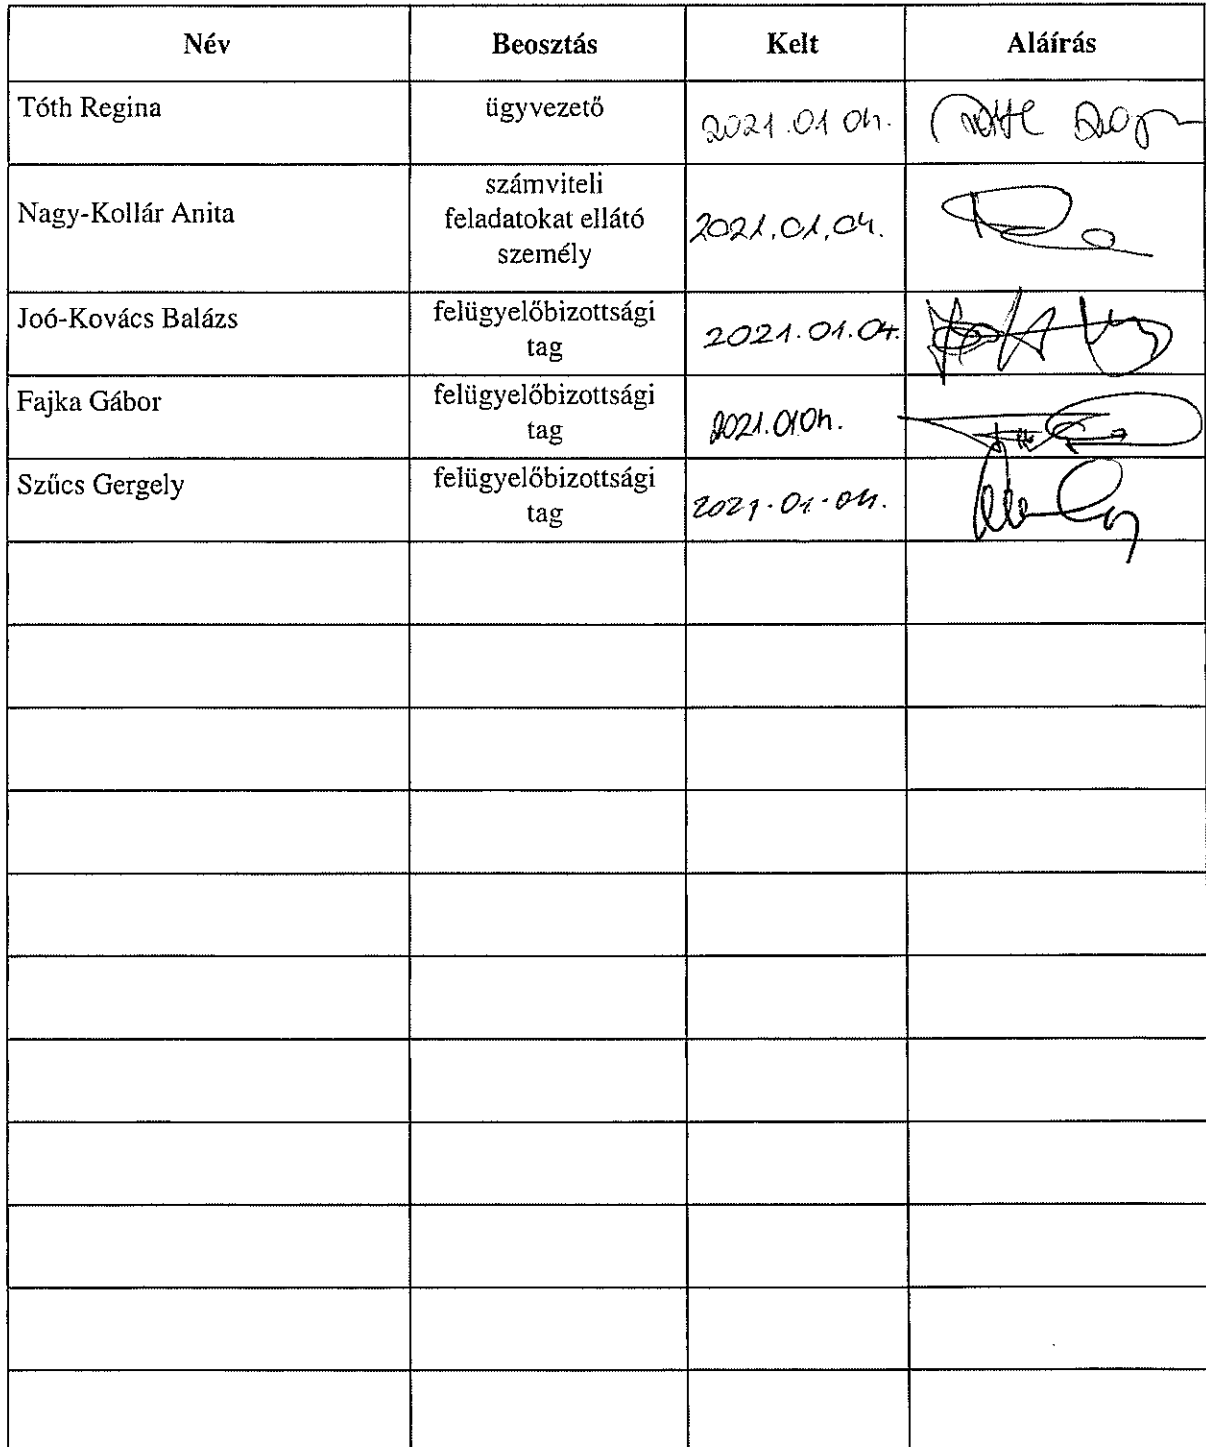 Név Beosztás Kelt Aláírás
Tóth Regina ügyvezető 2021.01 04.
Nagy-Kollár Anita számviteli
feladatokat ellátó
személy 2021.01.04.
Joó-Kovács Balázs felügyelőbizottsági
tag 2021.01.04.
Fajka Gábor felügyelőbizottsági
tag 2021.01 04.
Szűcs Gergely felügyelőbizottsági
tag 2021.01.04.